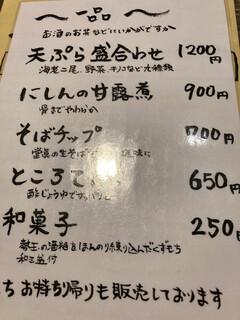 一品
お酒のお茶などにいかがですか
天ぷら盛合わせ 1200円
海老二尾、野菜、キノコなど九種類
にしんの甘露煮 900円
骨までやわらか
そばチップ 700円
ところて 650円
和菓子 250円
蔵王の酒粕をほんのり練り込んだくずもち
和三盆付
ち お持ち帰りも販売しております